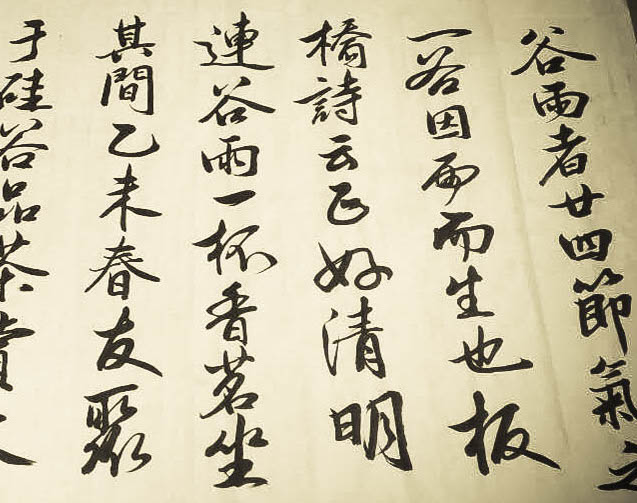 谷雨者廿四節氣之
一谷因雨而生也板
橋詩云正好清明
連谷雨一杯香茗坐
其間乙未春友聚
于硅谷品茶賞